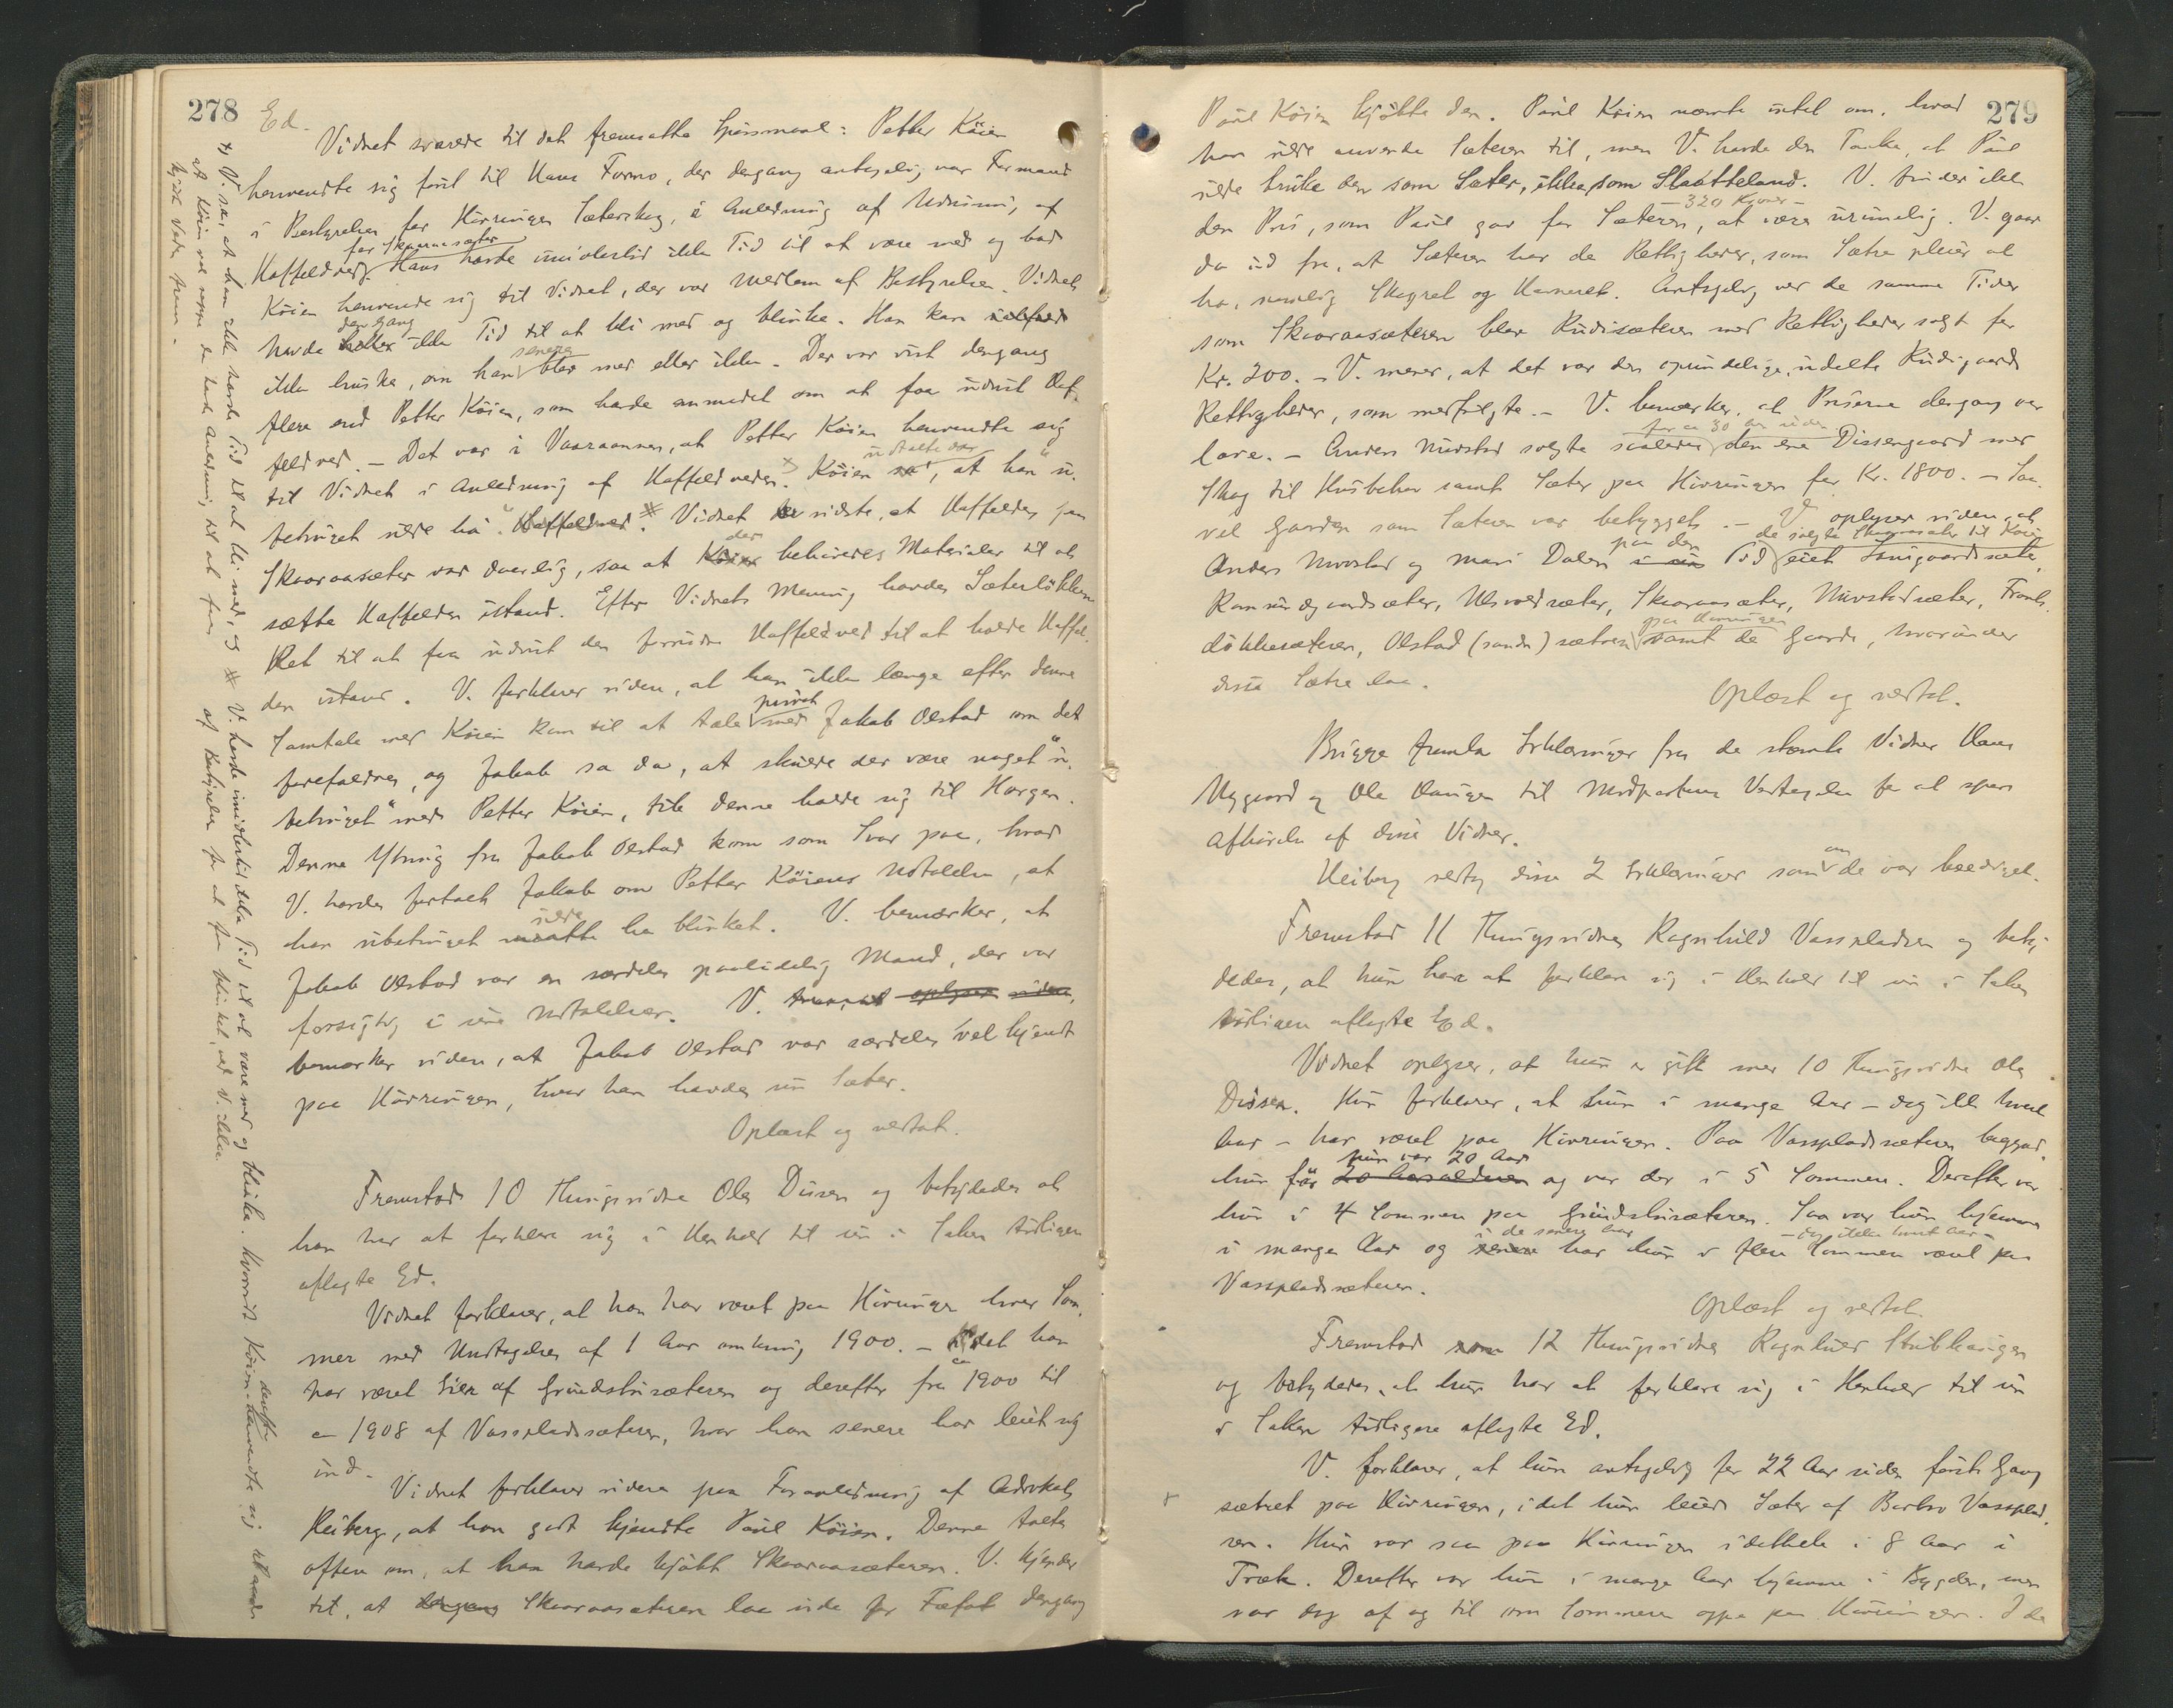 278
Ed.
Vidnet svarede til det fremsatte Spörsmaal: Petter Köien
henvendte sig först til Hans Formo, der dengang antagelig var Formand
i Bestyrelsen for Hirringen Sæterskog, i Anledning af Udvisning af
Kaffeldved for Skaaraasæter. Hans havde imidlertid ikke Tid til at være med og bad
Köien henvende sig til Vidnet, der var Medlem af Bestyrelsen. Vidnet
havde den Gang ikke Tid til at bli med og blinke. Han kan
ikke huske, om han senere blev med eller ikke. Der var vist dengang
flere end Petter Köien, som havde anmodet om at faa udvist Kaf-
feldved. – Det var i Vaaraannen, at Petter Köien henvendte sig
til Vidnet i Anledning af Kaffeldveden. x) Köien udtalte da, at han "u-
betinget vilde ha". # Vidnet vidste, at Kaffelden paa
Skaaraasæter var daarlig, saa at der behövedes Materialer til at
sætte Kaffelden istand. Efter Vidnets Mening havde Sæterlökken
Ret til at faa udvist den fornödne Kaffeldved til at holde Kaffel-
den istand. V. forklarer videre, at han ikke længe efter denne
Samtale med Köien kom til at tale privat med Jakob Olstad om det
forefaldne, og Jakob sa da, at skulde der være noget "u-
betinget" med Petter Köien, fik denne holde sig til Horgen.
Denne Ytring fra Jakob Olstad kom som Svar paa, hvad
V. havde fortalt Jakob om Petter Köiens Udtalelse, at
han ubetinget vilde ha blinket. V. bemærker, at
Jakob Olstad var en særdeles paalidelig Mand, der var
forsigtig i sine Udtalelser. V. oplyser videre,
bemærker videre, at Jakob Olstad var særdeles vel kjendt
paa Hirringen, hvor han havde sin Sæter.
Oplæst og vedtat.
Fremstod 10 Thingsvidne Ole Dissen og betydedes at
han har at forklare sig i Henhold til sin i Saken tidligere
aflagte Ed.
Vidnet forklarer, at han har været paa Hirringen hver Som-
mer med Undtagelse af 1 Aar omkring 1900. – idet han
har været Eier af Grundstusæteren og derefter fra ca 1900 til
ca 1908 af Vasspladssæteren, hvor han senere har leiet sig
ind.
Vidnet forklarer videre paa Foranledning af Advokat
Heiberg, at han godt kjendte Paul Köien. Denne talte
ofte om, at han havde kjöbt Skaaraasæteren. V. kjender
til, at dengang Skaaraasæteren laa öde for Fæfot dengang
x) V. sa, at han ikke havde Tid til at bli med, og
at Köien vel neppe da havde Anledning til at faa
kjört Veden frem. –
# V. havde imidlertid ikke Tid til at være med og blinke. Hvorvidt Köien derefter henvendte sig til andre
af Bestyrelsen for at faa blinket, ved V. ikke.
279
Paul Köien kjöbte den. Paul Köien nævnte intet om, hvad
han vilde anvende Sæteren til, men V. havde den Tanke, at Paul
vilde bruke den som Sæter, ikke som Slaatteland. V. finder ikke
den Pris, – 320 Kroner – som Paul gav for Sæteren, at være urimelig. V. gaar
da ud fra, at Sæteren har de Rettigheder, som Sætre pleier at
ha, nemlig Skogret og Havneret. Antagelig ved de samme Tider
som Skaaraasæteren blev Rudisæteren med Rettigheder solgt for
Kr. 200. – V. mener, at det var den oprindelige, udelte Rudigaards
Rettigheder, som medfulgte. – V. bemærker, at Priserne dengang var
lave. – Anders Nustad solgte for ca 30 Aar siden den ene Dissengaard med
Skog til Husbehov samt Sæter paa Hirringen for Kr. 1800. – Saa-
vel Gaarden som Sæteren var bebygget. – V. oplyser videre, at
Anders Nustad og Mari Dalen paa den Tid de solgte Skaaraasæter til Köien eiet Enigaardsæter,
Ramsöygaardsæter, Ulsvoldsæter, Skaaraasæter, Nustadsæter, Trond-
döhlesæteren, Olstad (söndre) sætre paa Hirringen samt de Gaarde, hvorunder
disse Sætre laa.
Oplæst og vedtat.
Brügge fremla Erklæringer fra de stevnte Vidner Hans
Nygaard og Ole Haugen til Modpartens Vedtagelse for at spare
Afhörelse af disse Vidner.
Heiberg vedtog disse 2 Erklæringer som om de var beediget.
Fremstod 11 Thingsvidne Ragnhild Vasspladsen og bety-
dedes, at hun har at forklare sig i Henhold til sin i Saken
tidligere aflagte Ed.
Vidnet oplyser, at hun er gift med 10 Thingsvidne Ole
Dissen. Hun forklarer, at hun i mange Aar – dog ikke hvert
Aar – har været paa Hirringen. Paa Vasspladssæteren begynte
hun för hun var 20 Aar og var der i 5 Sommere. Derefter var
hun i 4 Sommere paa Grundstusæteren. Saa var hun hjemme
i mange Aar og i de senere Aar har hun i flere Sommere – dog ikke hvert Aar – været paa
Vasspladssæteren.
Oplæst og vedtat.
Fremstod som 12 Thingsvidne Ragnhild Stubhaugen
og betydedes, at hun har at forklare sig i Henhold til sin
i Saken tidligere aflagte Ed.
V. forklarer, at hun antagelig for 22 Aar siden förste Gang
sætret paa Hirringen, idet hun leied Sæter af Barbro Vassplad-
sen. Hun var saa paa Hirringen idethele i 8 Aar i
Træk. Derefter var hun i mange Aar hjemme i Bygden, men
var dog af og til om Sommeren oppe paa Hirringen. I de